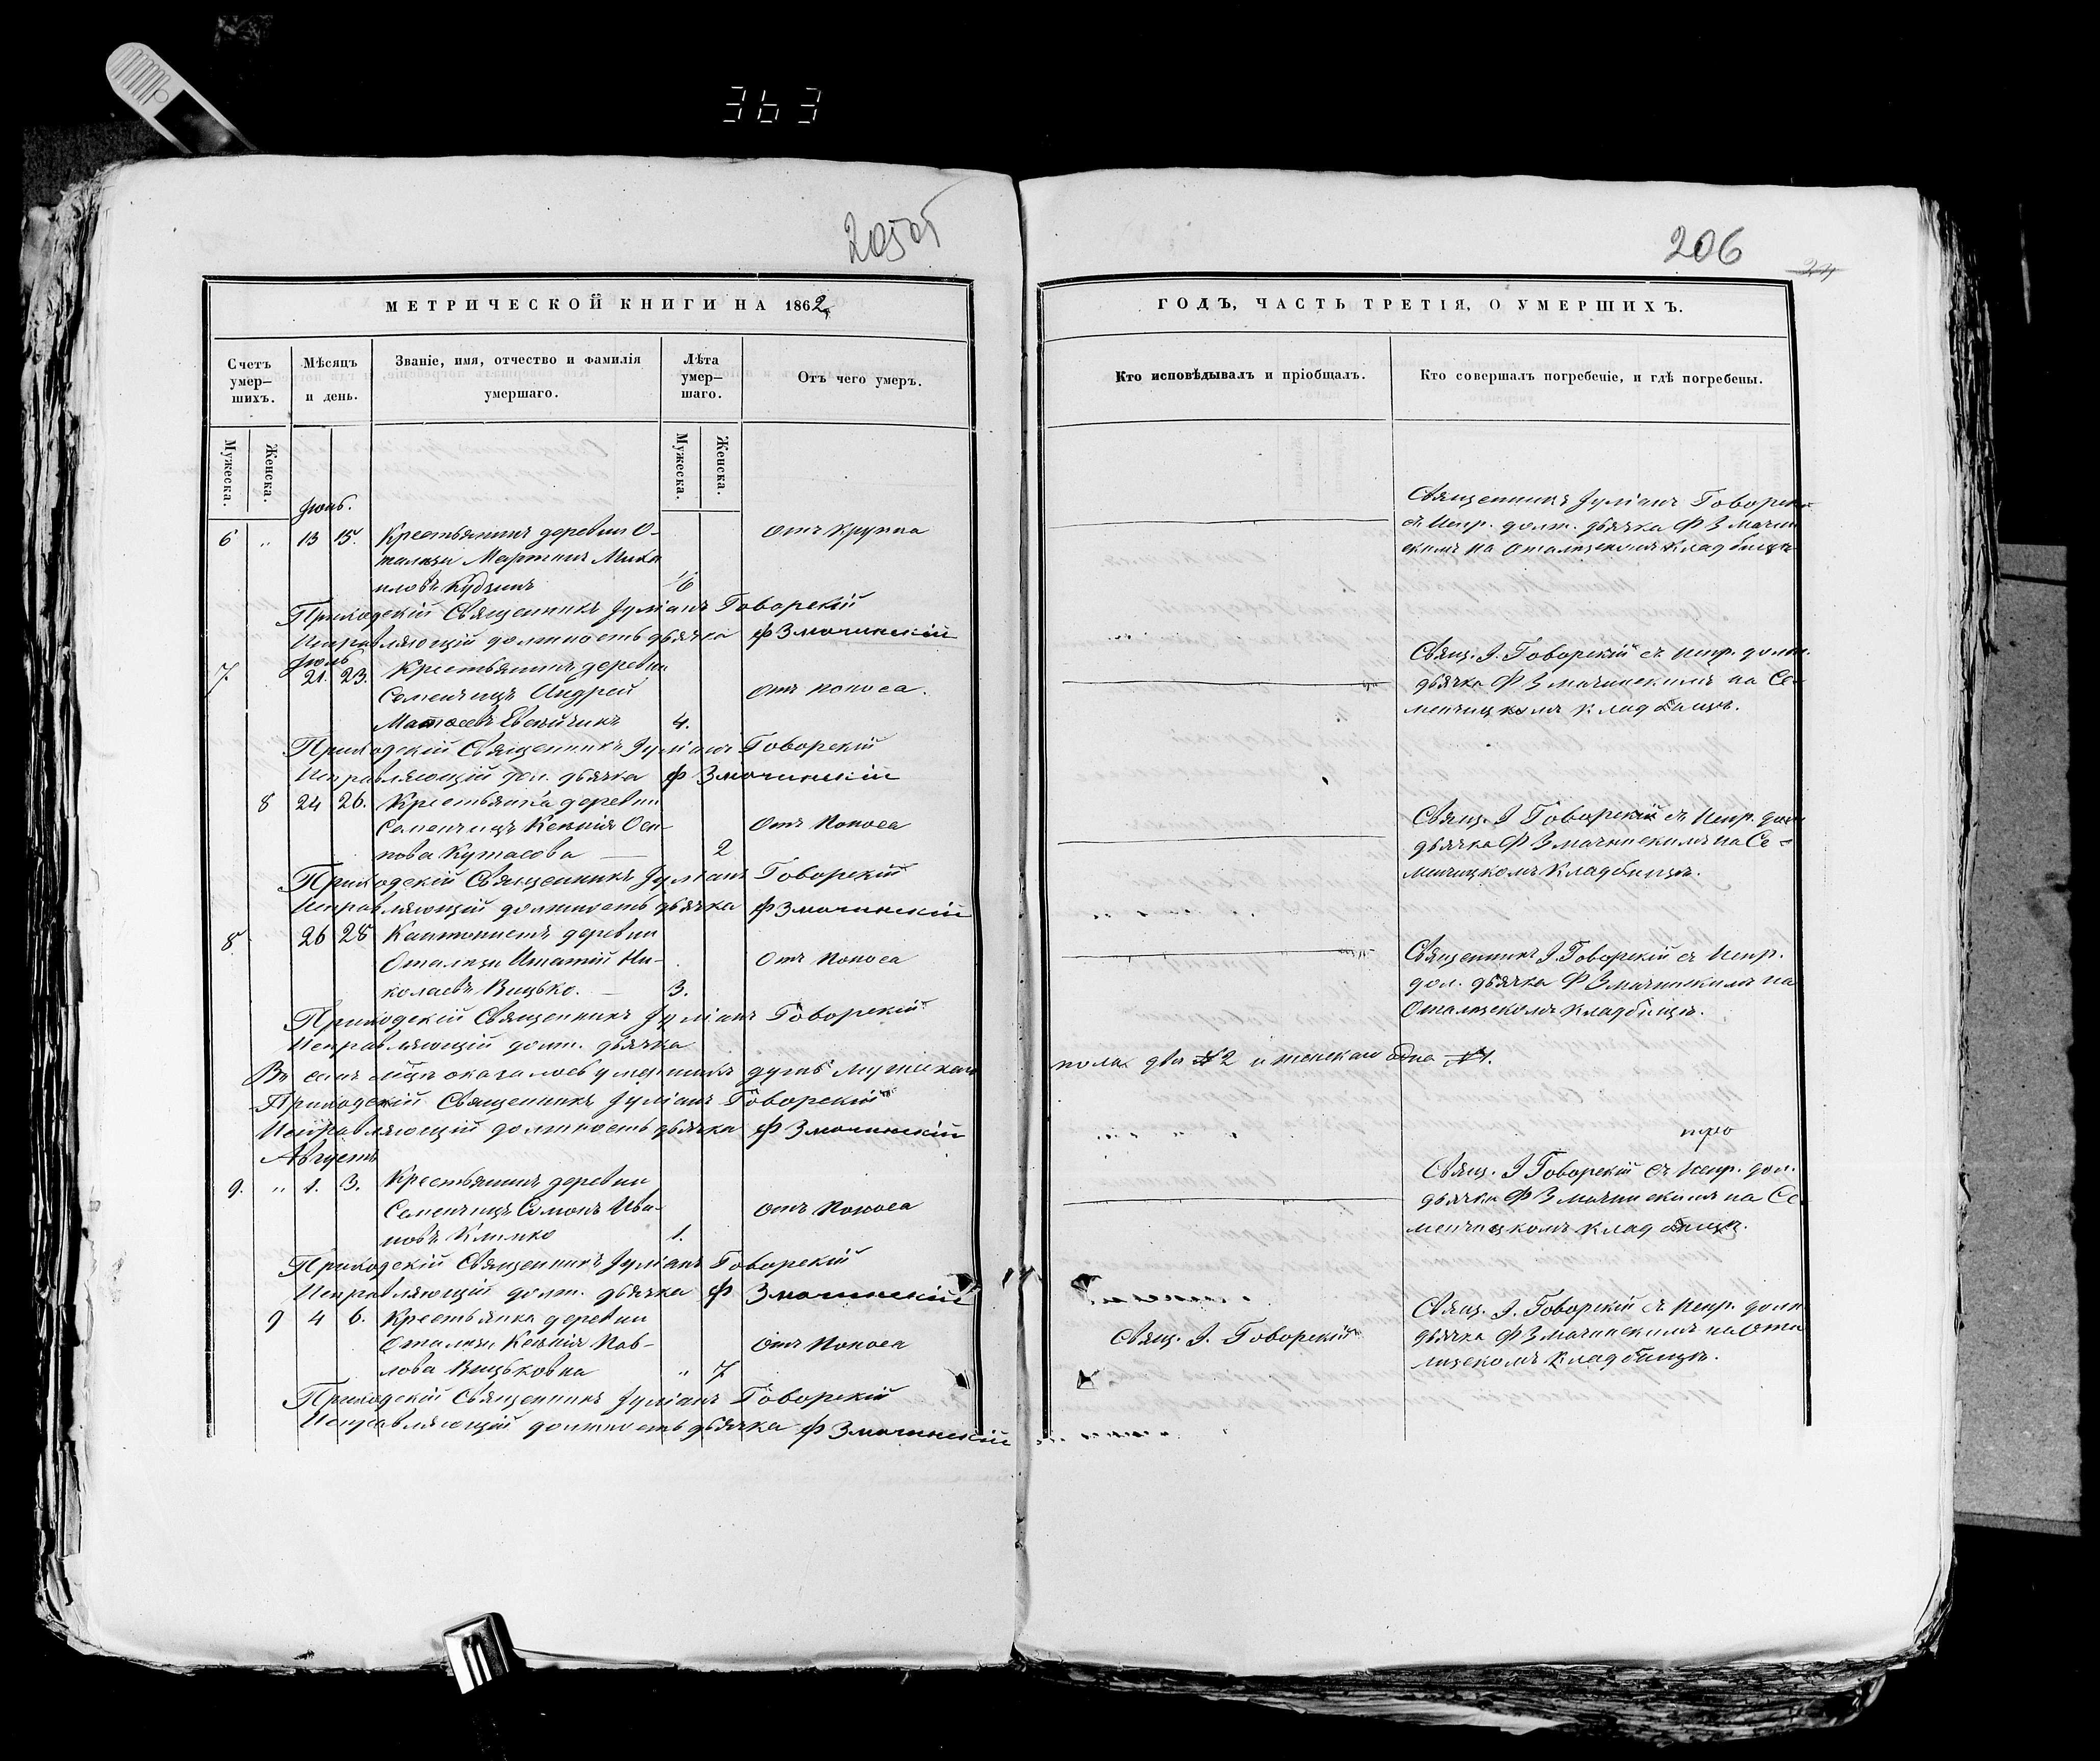 363
205об
206
МЕТРИЧЕСКОЙ КНИГИ НА 1862
ГОДЪ, ЧАСТЬ ТРЕТІЯ, О УМЕРШИХЪ.
Счетъ умер-
шихъ.
Мѣсяцъ
и день.
Званіе, имя, отчество и фамилія
умершаго.
Лѣта
умер-
шаго.
Отъ чего умеръ.
Кто исповѣдывалъ и пріобщалъ.
Кто совершалъ погребеніе, и гдѣ погребены.
Мужеска.
Женска.
Мужеска.
Женска.
6 " 13 15. Крестьянинъ деревни О-
отъ крупа
Мартинъ Миха
иловъ
Священникъ Іуліанъ Говорскій
съ испр. долж. дьячка Ф Змачин
скимъ на кладбищѣ
Приходскій Священникъ Іуліанъ Говорскій
Исправляющій должность дьячка Ф Змачинскій
7. 21. 23. Крестьянинъ деревни
Семенчицъ Андрей
отъ поноса.
4.
Свящ. І. Говорскій съ испр. долж.
дьячка Ф Змачинскимъ на Се-
менчицкомъ кладбищѣ.
Приходскій Священникъ Іуліанъ Говорскій
Исправляющій дол. дьячка Ф Змачинскій
8 24 26. Крестьянка деревни
Семенчицъ Ксенія Оси-
Отъ поноса
пова Кутасова 2
Свящ. І Говорскій съ испр. долж
дьячка Ф Змачинскимъ на Се-
менчицкомъ кладбищѣ.
Приходскій Священникъ Іуліанъ Говорскій
Исправляющій должность дьячка Ф Змачинскій
8. 26 28 Кантонистъ деревни
Игнатій Ни-
Отъ поноса
колаевъ Вицько. 3.
Священникъ І. Говорскій съ испр.
дол. дьячка Ф Змачинскимъ на
кладбищѣ.
Приходскій Священникъ Іуліанъ Говорскій
Исправляющій долж. дьячка
Въ семъ мцѣ оказалось умершихъ душъ мужескаго
пола два 2 и женскаго одна 1.
Приходскій Священникъ Іуліанъ Говорскій
Исправляющій должность дьячка Ф Змачинскій
Августъ
9. " 1. 3. Крестьянинъ деревни
Семенчицъ Самонъ Ива-
отъ поноса
новъ Климко 1.
Свящ. І Говорскій съ испр. дол.
дьячка Ф Змачинскимъ на Се
менчицкомъ кладбищѣ.
Приходскій Священникъ Іуліанъ Говорскій
Исправляющій долж. дьячка Ф Змачинскій
9 4 6. Крестьянка деревни
Ксенія Пав-
Отъ поноса
лова Вицьковна " 7
Свящ. І. Говорскій
Свящ. І. Говорскій съ испр. долж
дьячка Ф Змачинскимъ на
кладбищѣ.
Приходскій Священникъ Іуліанъ Говорскій
Исправляющій должность дьячка Ф Змачинскій